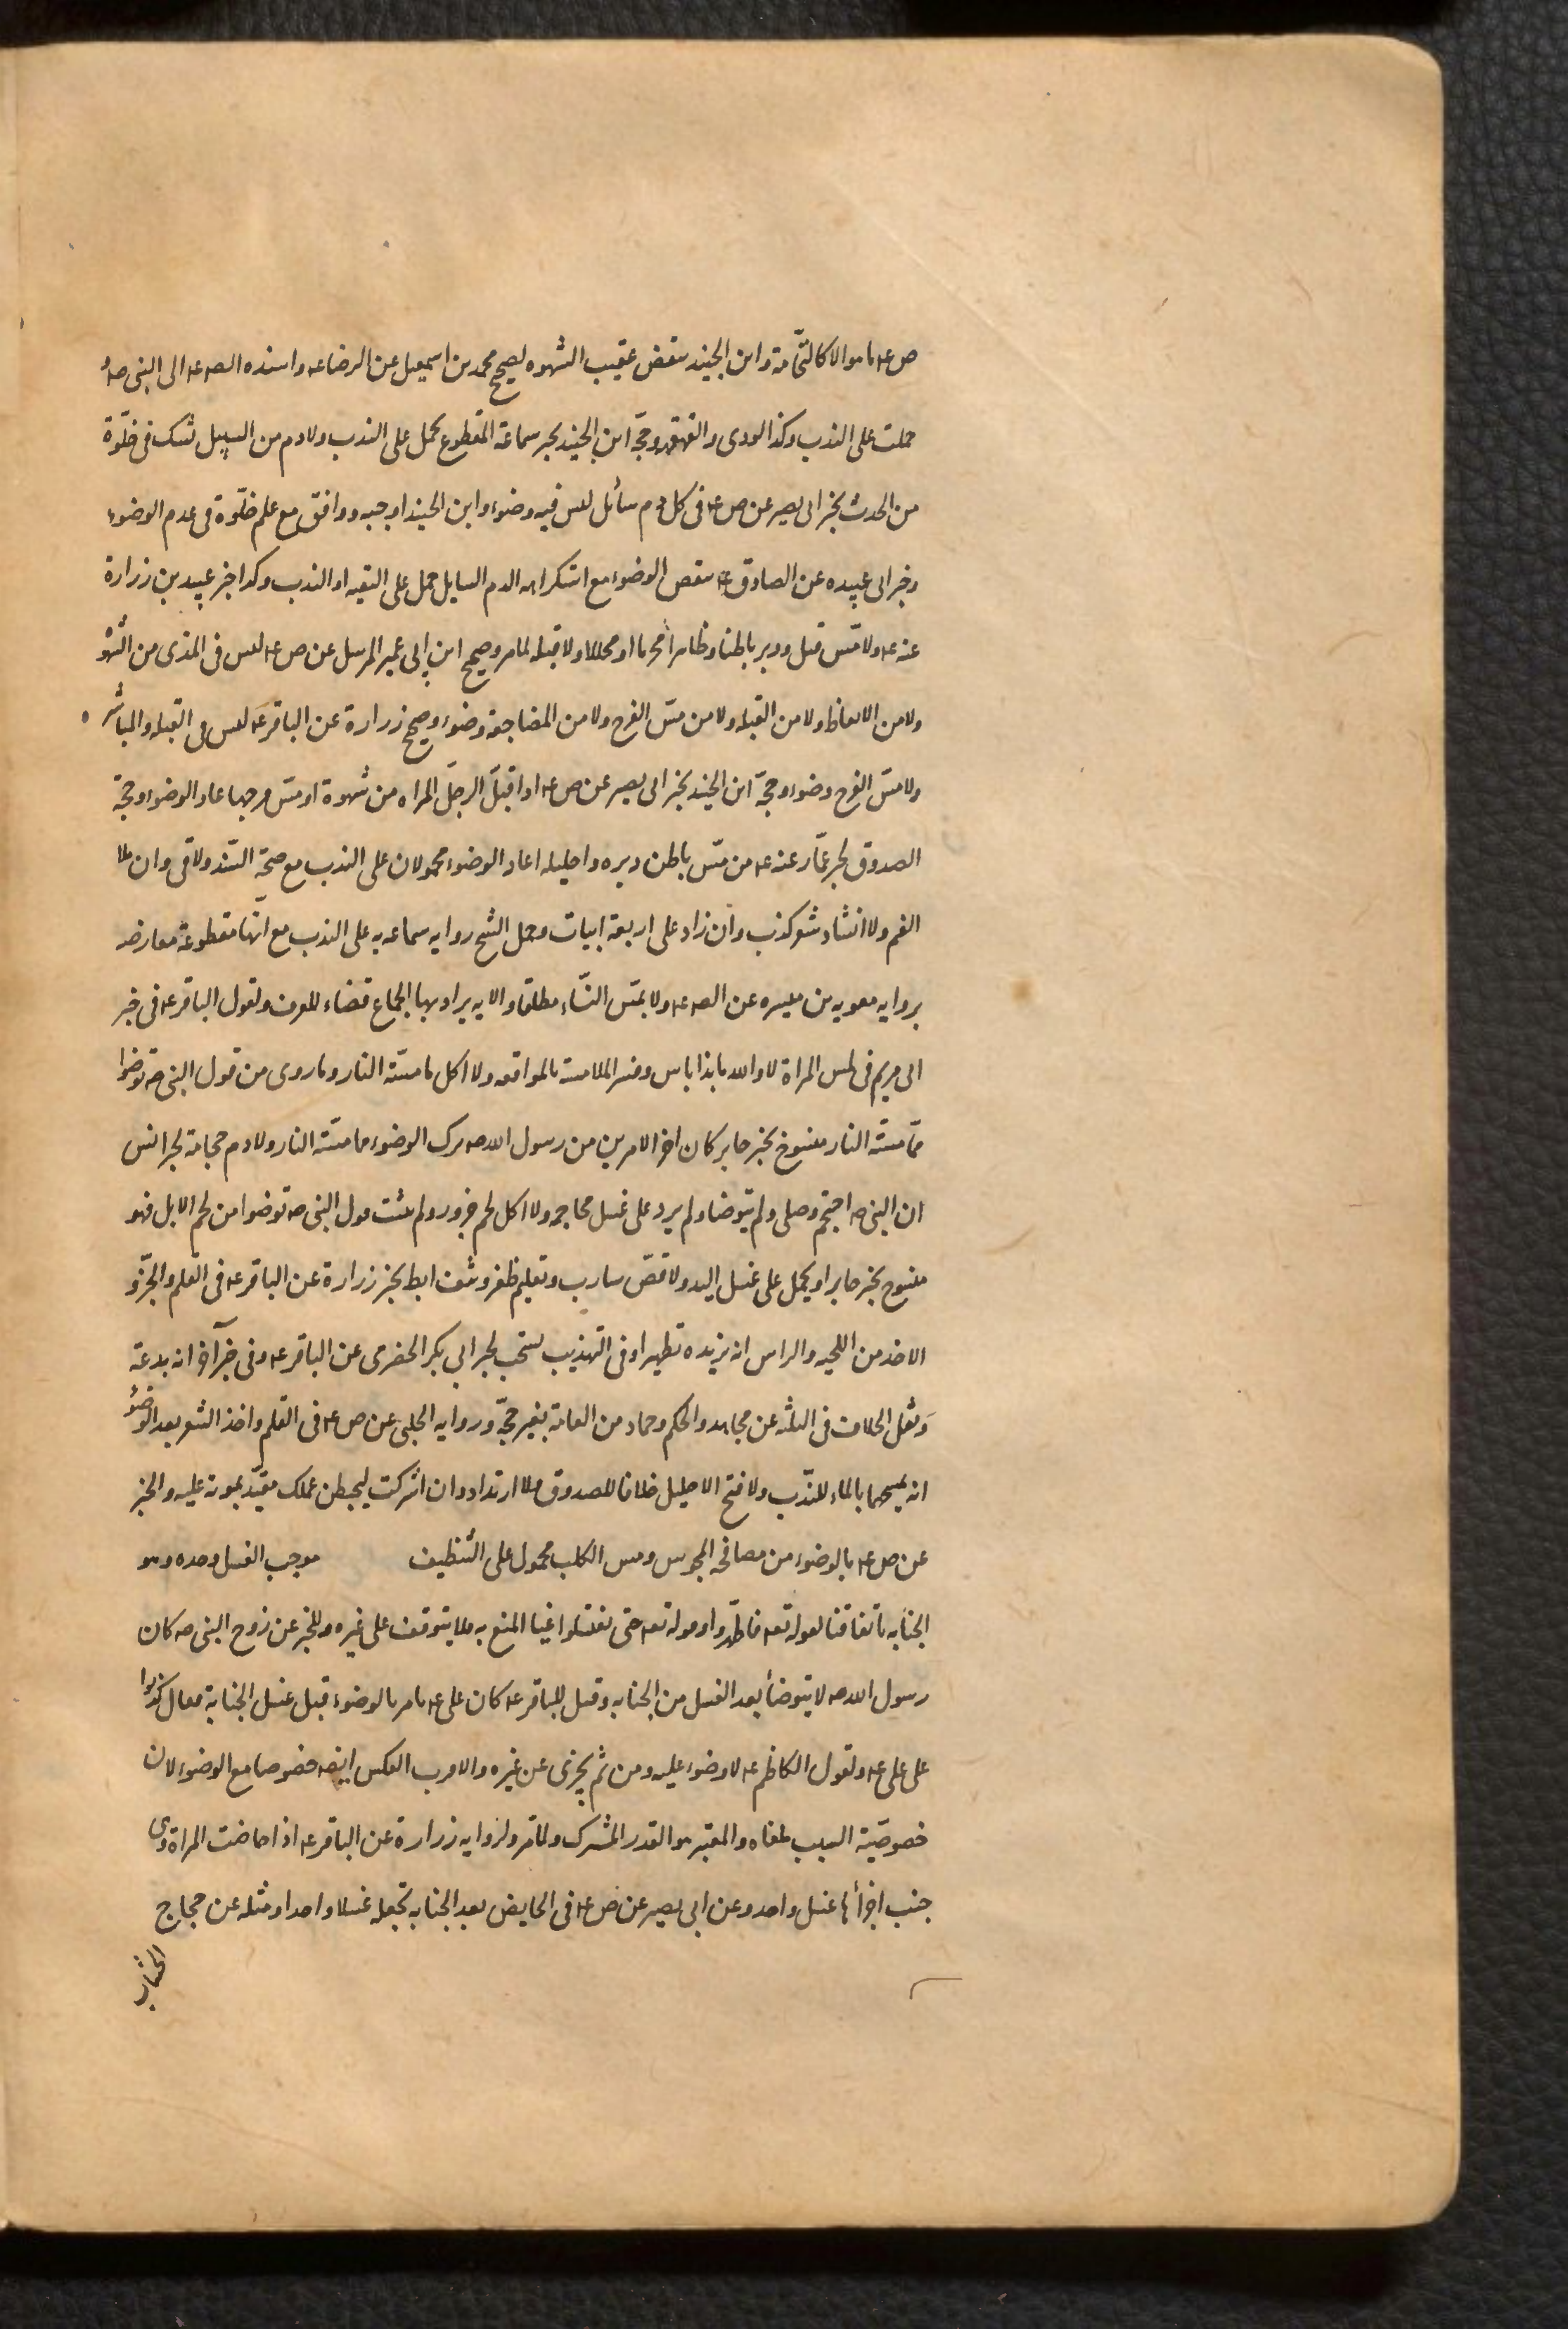 ص ع ما هو الا كالنخامة و ابن الجنيد ينقض عقيب الشهوه لصحيح محمد بن اسمعيل عن الرضا ع و اسنده الص ع الى النبى ص
حملت على الندب و كذا الودى و القهقهه و حجّة ابن الجنيد بخبر سماعة المقطوع يحمل على الندب ولا دم من السبيل شك فى خلّوه
من الحدث بخبر ابى بصير عن ص ع فى كل دم سائل ليس فيه وضوء و ابن الجنيد اوجبه و وافق مع علم خلّوه فى عدم الوضوء
و خبر ابى عبيده عن الصادق ع ينقض الوضوء مع استكراه الدم السايل حمل على التقيه او الندب و كذا خبر عبيد بن زرارة
عنه ع ولا مسّ قبل و دبر باطنا و ظاهرا محرما او محللا ولا قبله لما مر و صحيح ابن ابى عمير المرسل عن ص ع ليس فى المذى من الشهوة
ولا من الانعاظ ولا من القبله ولا من مسّ الفرج ولا من المضاجعة وضوء و صحيح زرارة عن الباقر ع ليس فى القبله و المباشرة
ولا مسّ الفرج وضوء و حجّة ابن الجنيد بخبر ابى بصير عن ص ع اذا قبّل الرجل المراه من شهوة او مسّ فرجها اعاد الوضوء و حجة
الصدوق بخبر عمّار عنه ع من مسّ باطن دبره و احليله اعاد الوضوء محمولان على الندب مع صحّة السّند ولا قى و ان ملا
الفم ولا انشاد شعر كذب و ان زاد على اربعة ابيات و حمل الشيخ روايه سماعه به على الندب مع انّها مقطوعة معارضه
بروايه معويه بن ميسره عن الص ع ولا بمسّ النّساء مطلقا و الايه يراد بها الجماع قضاء للعرف و لقول الباقر ع فى خبر
ابى مريم فى لمس المراة لا و الله ما بذا باس و فسر الملامسة بالمواقعه ولا اكل ما مسّته النار و ما روى من قول النبى ص توضوا
ممّا مسّته النار منسوخ بخبر جابر كان اخر الامرين من رسول الله ص ترك الوضوء مما مسّته النار ولا دم حجامة لخبر انس
ان النبى ص احتجم و صلى و لم يتوضا و لم يزد على غسل محاجمه ولا اكل لحم جزور و لم يثبت قول النبى ص توضوا من لحم الابل فهو
منسوخ بخبر جابر او يحمل على غسل اليد ولا قصّ شارب و تقليم ظفر و نتف ابط بخبر زرارة عن الباقر ع فى القلم و الجزّ و
الاخذ من اللحيه و الراس انه يزيده تطهيرا و فى التهذيب يستحب لخبر ابى بكر الحضرمى عن الباقر ع و فى خبر آخر انه بدعة
و نقل الخلاف فى الثلثه عن مجاهد و الحكم و حماد من العامة بغير حجّة و روايه الحلبى عن ص ع فى القلم و اخذ الشعر بعد الوضوء
انه يمسحهما بالماء للنّدب ولا فتح الاحليل خلافا للصدوق ولا ارتداد و ان اشركت ليحبطن عملك مقيّد بموته عليه و الخبر
عن ص ع بالوضوء من مصافحه المجوس و مس الكلب محمول على التنظيف موجب الغسل وحده و هو
الجنابه باتفاقنا لقوله تعه فاطّهروا و قوله تعه حتى تغتسلوا غيا المنع به فلا يتوقف على غيره و للخبر عن زوج النبى ص كان
رسول الله ص لا يتوضأ بعد الغسل من الجنابه و قيل للباقر ع كان على ع يامر بالوضوء قبل غسل الجنابة فقال كذبوا
على على ع و لقول الكاظم ع لا وضوء عليه و من ثم يجزى عن غيره و الاقرب العكس ايضه خصوصا مع الوضوء لان
خصوصيّة السبب ملغاه و المعتبر هو القدر المشترك و لما مر و لروايه زرارة عن الباقر ع اذا حاضت المراة و هى
جنب اجزأها غسل واحد و عن ابى بصير عن ص ع فى الحايض بعد الجنابه تجعله غسلا واحدا و مثله عن حجاج
الخشاب